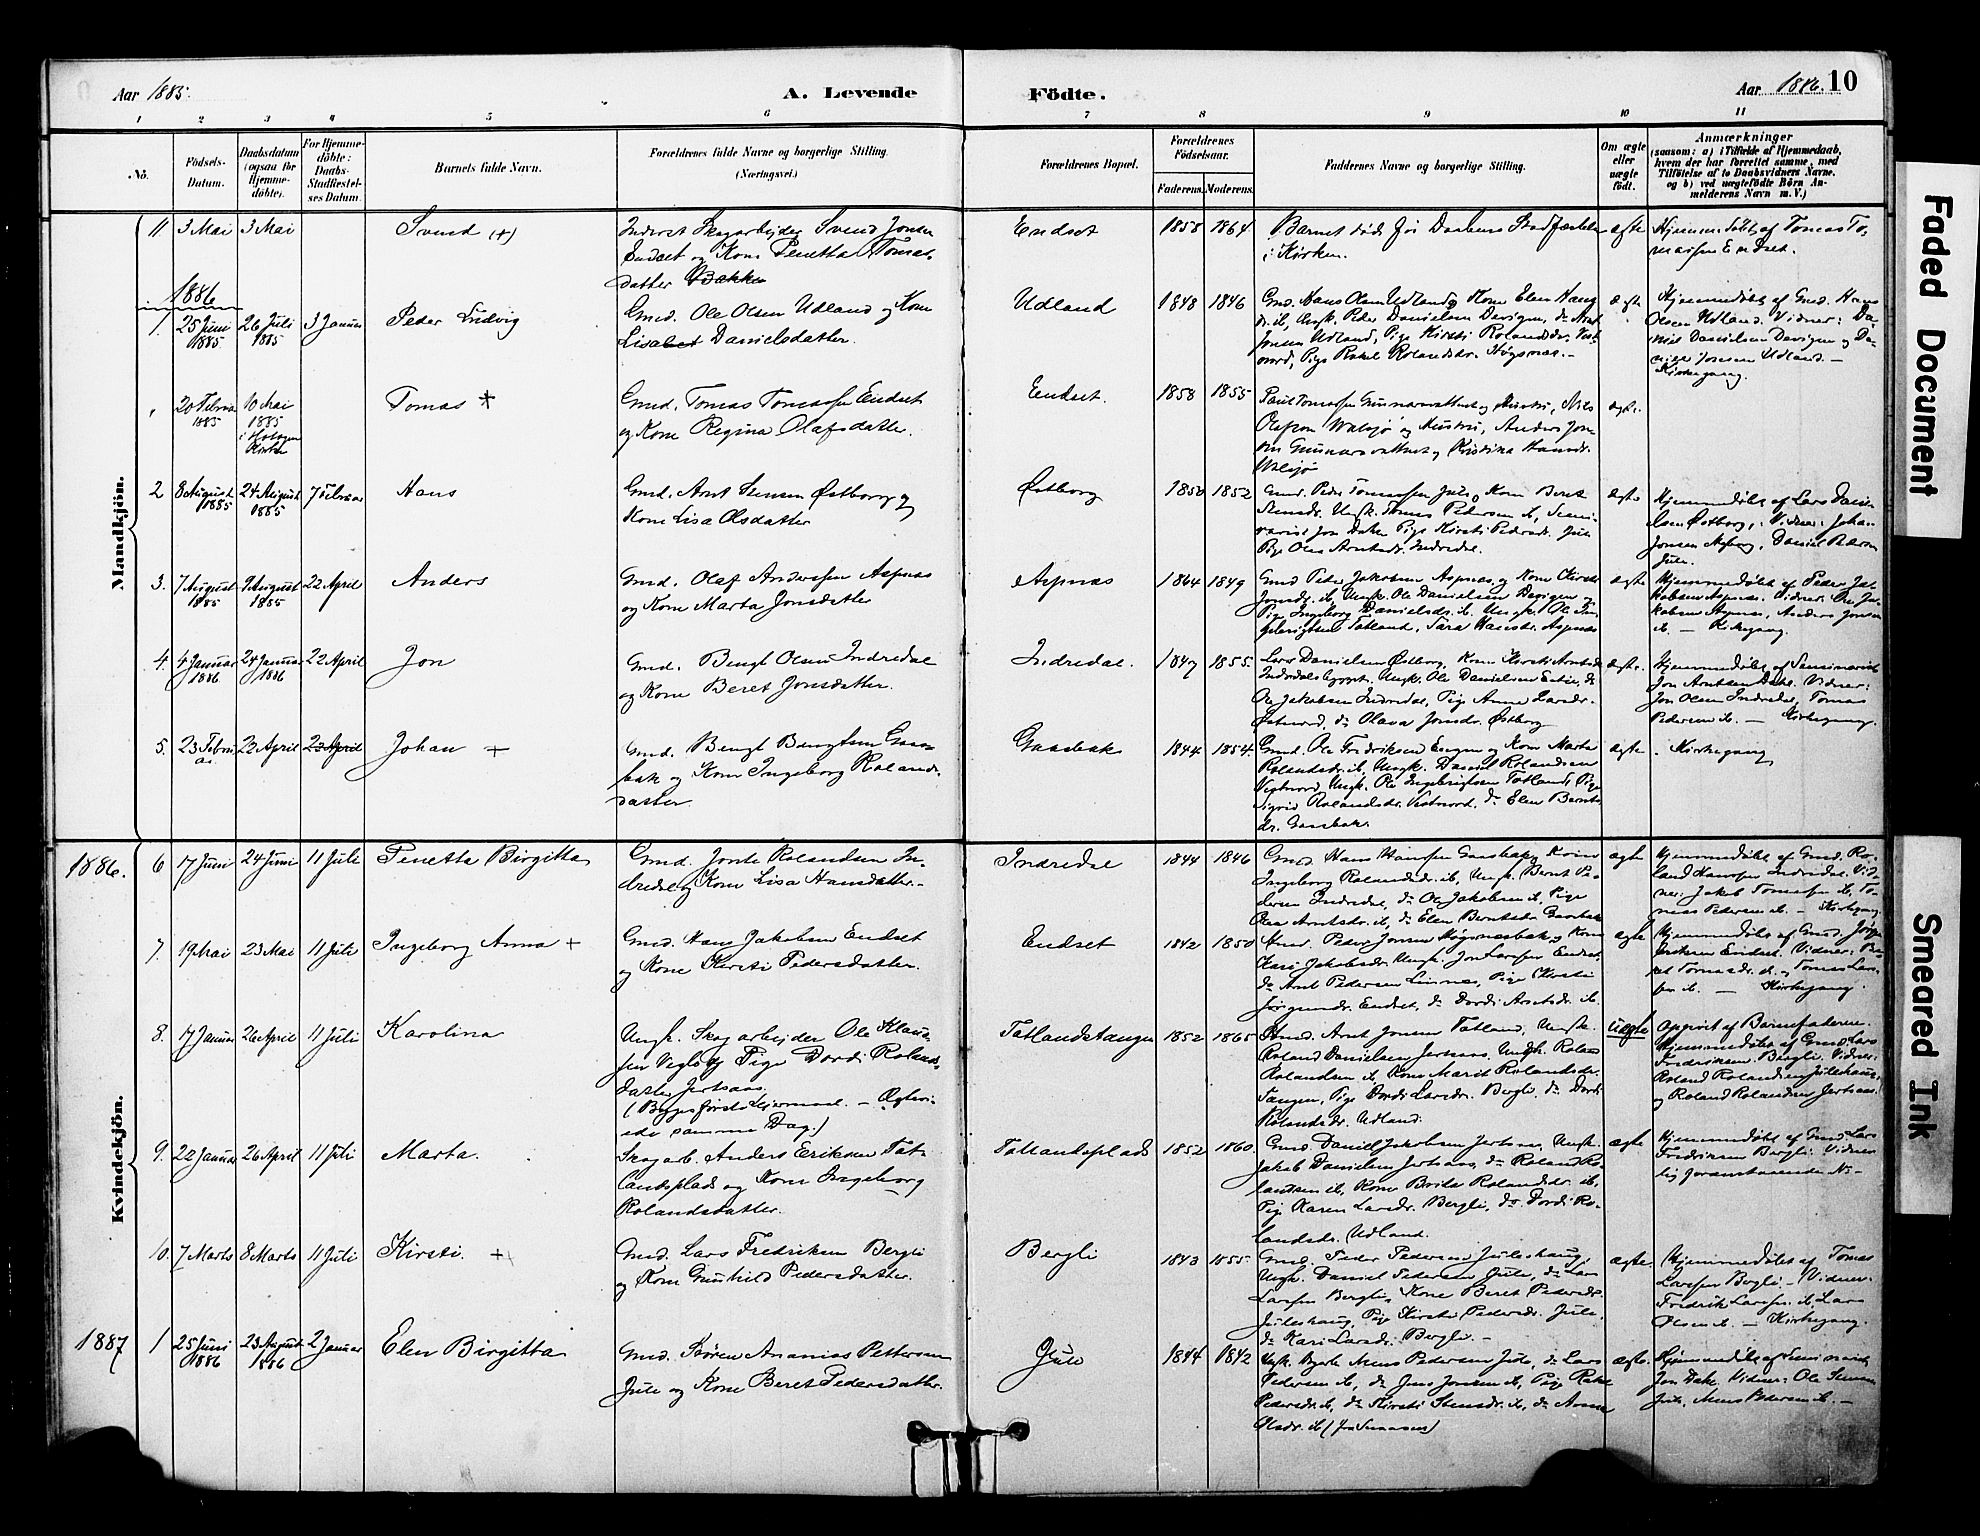 Aar 1885.
A. Levende
Födte.
Aar 1886. 10
1 2 3 4 5 6 7 8 9 10 11
No.
Födsels-
Datum.
Daabsdatum
(ogsaa for
Hjemme-
döbte).
For Hjemme-
döbte:
Daabs-
Stadfæstel-
ses Datum.
Barnets fulde Navn.
Forældrenes fulde Navne og borgerlige Stilling.
(Næringsvei.)
Forældrenes Bopæl.
Forældrenes
Födselsaar.
Faderens. Moderens.
Faddernes Navne og borgerlige Stilling.
Om ægte
eller
uægte
födt.
Anmærkninger
(saasom: a) i Tilfælde af Hjemmedaab,
hvem der har forrettet samme, med
Tilföielse af to Daabsvidners Navne,
og b) ved uægtefödte Börn An-
melderens Navn m. V.)
Mandkjön.
11 3 Mai 3 Mai Svend (+)
Inderst Skogarbejder Svend Jonsen
Endset og Kone Penetta Tomas-
datter Bakken
Endset 1858 1864
Barnet død før Daabens Stadfæstelse
i Kirken.
ægte
Hjemmedøbt af Tomas To-
massen Endset.
1886
1. 25 Juni 1885 26 Juli 1885 3 Januar Peder Ludvig
Gmd. Ole Olsen Udland og Kone
Lisabet Danielsdatter.
Udland 1848 1846
Gmd. Hans Olsen Udland og Kone Elen Hans-
dr. ib., Ungk. Peder Danielsen Devigen, do Arnt
Jonsen Udland, Pige Kirsti Rolandsdr. Vest-
nord, Pige Rakel Rolandsdr. Høgsnæs.-
ægte
Hjemmedøbt af Gmd. Hans
Olsen Udland. Vidner: Da-
niel Danielsen Devigen og Da-
niel Jonsen Udland. -
Kirkegang.
20 Februar 1885 10 Mai 1885 i Hologen Kirke Tomas +
Gmd. Tomas Tomassen Endset
og Kone Regina Olafsdatter.
Endset. 1858 1855
Paul Tomassen Gunnarsvattnet og Hustru, Nils
Olafson Valsjø og Hustru, Anders Jons-
son Gunnarsvattnet og Kristina Hansdr.
Valsjø
ægte.
2 8 August 1885 24 August 1885 7 Februar Hans
Gmd. Arnt Stensen Østborg og
Kone Lisa Olsdatter
Østborg 1850 1852
Gmd. Peder Tomassen Jule, Kone Beret
Stensdr. Ungk. Tomas Pedersen ib., Semi-
narist Jon Dahle, Pige Kirsti Pedersdr. Jule
Pige Olea Arntsdr. Indredal.
ægte
Hjemmedøbt af Lars Dani-
elsen Østborg,: Vidner: Johan
Jonsen Aspborg, Daniel Pedersen
Jule.
3. 7 August 1885 9 August 1885 22 April Anders
Gmd. Olaf Anderssen Aspnæs
og Kone Marta Jonsdatter
Aspnæs 1864 1849
Gmd Peder Jakobsen Aspnæs, og Kone Kirsti
Jonsdr. ib. Ungk. Ole Danielsen Devigen og
Pige Ingeborg Danielsdr. ib. Ungk. Ole In-
gebrigtsen Totland, Sara Hansdr. Aspnæs
ægte
Hjemmedøbt af Peder Ja-
kobsen Aspnæs. Vidner: Ole Ja-
kobsen Aspnæs, Anders Jonsen
ib. - Kirkegang.
4. 4 Januar 1886 24 Januar 1886 22 April Jon
Gmd. Bengt Olsen Indredal
og Kone Beret Jonsdatter.
Indredal. 1847 1855.
Lars Danielsen Østborg, Kone Kirsti Arntsdr.
Indredalsbygget. Ungk. Ole Danielsen Estie, do
Ole Jakobsen Indredal, Pige Anne Larsdr.
Østnord, do Olava Jonsdr. Østborg
ægte.
Hjemmedøbt af Seminarist
Jon Arntsen Dahl. Vidner:
Jon Olsen Indredal, Tomas
Pedersen ib. - Kirkegang.
5. 23 Febru-
ar 22 April 22 April Johan +
Gmd. Bengt Bengtsen Gaas-
bak og Kone Ingeborg Rolands-
datter.
Gaasbak 1844 1854.
Gmd. Ole Fredriksen Engen og Kone Marta
Rolandsdr. ib., Ungk. Daniel Rolandsen
Vestnord, Ungk. Ole Ingebrigtsen Totland, Pige
Sigrid Rolandsdr. Vestnord. do Elen Bernts-
dr. Gaasbak.
ægte . Kirkegang
Kvindekjön.
1886. 6 17 Juni 24 Juni 11 Juli Penetta Birgitta
Gmd. Jonte Rolandsen In-
dredal og Kone Lisa Hansdatter.-
Indredal 1844 1846
Gmd. Hans Hanssen Gaasbak, Kone
Ingeborg Rolandsdr. ib., Ungk. Bernt Pe-
dersen Indredal, do Ole Jakobsen ib, Pige
Olea Arntsdr. ib, do Elen Berntsdr. Gaasbak
ægte
Hjemmedøbt af Gmd. Ro-
land Hanssen Indredal. Vid-
ner: Jakob Tomassen ib, To-
mas Pedersen ib. - Kirkegang.
7. 19 Mai 23 Mai 11 Juli Ingeborg Anna +
Gmd. Hans Jakobsen Endset
og Kone Kirsti Pedersdatter.
Endset 1842 1850
Gmd. Peder Jonsen Høgsnæsbak, Kone
Kari Jakobsdr. Ungk. Jon Larssen Endset,
do Arnt Pedersen Linnes, Pige Kirsti
Jørgensdr. Endset, do Dordi Arntsdr. ib.
ægte
Hjemmedøbt af Gmd. Jørgen
Jenssen Endset. Vidner: Be-
ret Tomasdr. ib. og Tomas Lars-
sen ib. - Kirkegang.
8. 17 Januar 26 April 11 Juli Karolina
Ungk. Skogarbejder Ole Klaus-
sen Veglo og Pige Dordi Rolands-
datter Jertsaas.
(Begges første Lejermaal. - Ægtevi-
ede samme Dag.)
Totlandstangen 1852 1865
Gmd. Arnt Jonsen Totland, Ungk.
Roland Danielsen Jertsaas, Ungk. Roland
Rolandsen ib, Kone Marit Rolandsdr.
Tangen, Pige Dordi Larsdr. Bergli, do Dordi
Rolandsdr. Udland.
uægte
Opgivet af Barnefaderen.
Hjemmedøbt af Gmd. Lars
Fredriksen Bergli. Vidner:
Roland Rolandsen Juleshaug,
og Roland Rolandsen Jertsaas.
9. 22 Januar 26 April 11 Juli Marta.
Skogarb. Anders Eriksen Tot-
landsplads og Kone Ingeborg
Rolandsdatter.
Totlandsplads 1852 1860.
Gmd Daniel Jakobsen Jertsaas, Ungk.
Jakob Danielsen Jertsaas, do Roland Ro-
landsen ib, Kone Berita Rolandsdr. ib,
Pige Karen Larsdr. Bergli, do Dordi Ro-
landsdr. Udland.
ægte
Hjemmedøbt af Gmd. Lars
Fredriksen Bergli. Vidner
lig foranstaaende No -
10. 7 Marts 8 Marts 11 Juli Kirsti. +
Gmd. Lars Fredriksen Bergli
og Kone Gunhild Pedersdatter.
Bergli 1843 1855.
Gmd. Peder Pedersen Juleshaug,
Ungk. Daniel Pedersen Jule, do Lars
Larssen Bergli, Kone Beret Pedersdr.
Juleshaug, Pige Kirsti Pedersdr. Jule,
do Kari Larsdr. Bergli. -
ægte.
Hjemmedøbt af Tomas
Larssen Bergli - Vidner.
Fredrik Larssen ib, Lars
Olsen ib. - Kirkegang.
1887 1 25 Juni 1886 23 August 1886 2 Januar Elen Birgitta
Gmd. Søren Ananias Pettersen
Jule og Kone Beret Pedersdatter.
Jule 1844 1842
Ungk. Mons Pedersen Jule, do Lars
Pedersen ib, do Jens Jonsen ib, Pige Rakel
Pedersdr. ib, do Kirsti Stensdr. ib, do Anna
Olsdr. ib (Jon Svensen)
ægte.
Hjemmedøbt af Seminarist
Jon Dahl. Vidner: Ole Stensen
Jule, Mons Pedersen ib. -
Faded Document
Smeared Ink